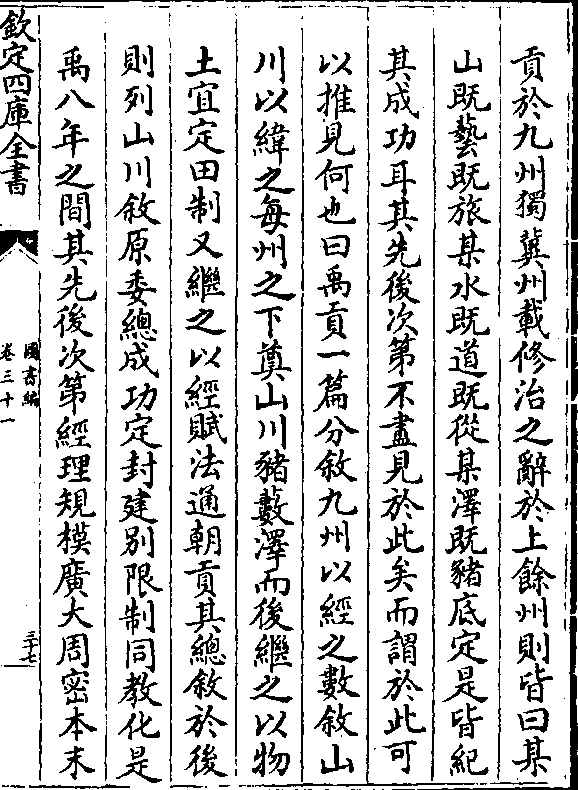 貢於九州獨冀州載修治之辭於上餘州則皆曰某
山既藝既旅某水既道既從某澤既豬底定是皆紀
其成功耳其先後次第不盡見於此矣而謂於此可
以推見何也曰禹貢一篇分敘九州以經之數敘山
川以緯之每州之下奠山川豬藪澤而後繼之以物
土宜定田制又繼之以經賦法通朝貢其總敘於後
則列山川敘原委總成功定封建别限制同教化是
禹八年之間其先後次第經理規模廣大周密本末
欽定四庫全書
圖書編
卷三十一
三十七